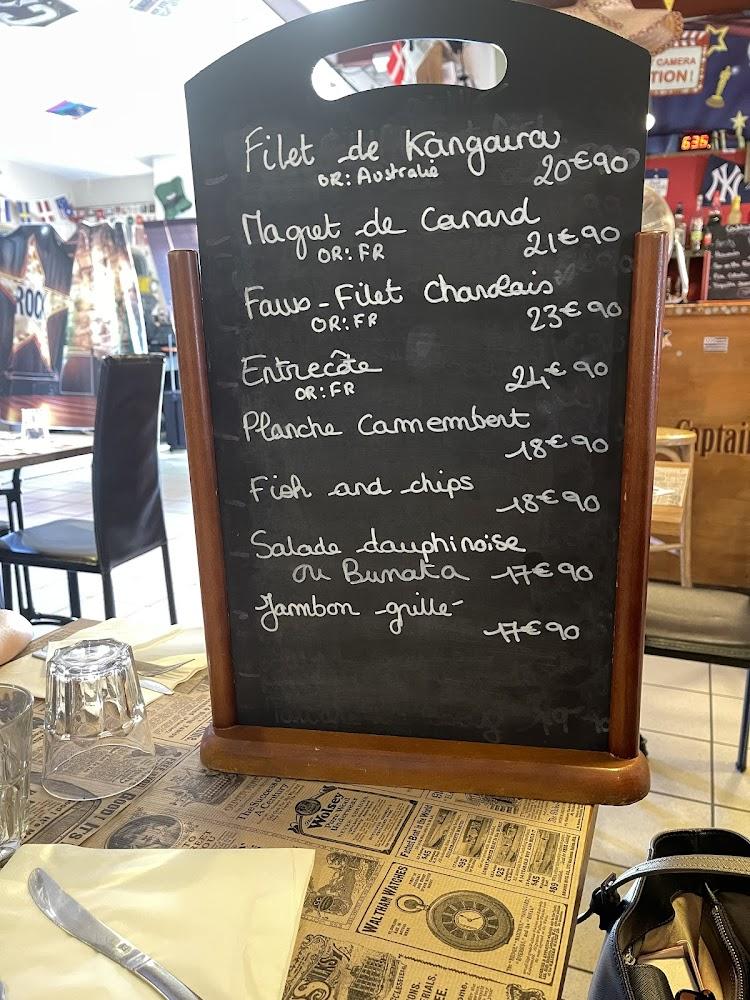 Filet de Kangourou
OR: Australie
20€90
Magret de Canard
OR: FR
21€90
Faux-Filet Charolais
OR: FR
23€90
Entrecôte
OR: FR
24€90
Planche Camembert
18€90
Fish and chips
18€90
Salade dauphinoise
ou Burrata 17€90
Jambon grillé
17€90
CAMERA
TION!
636
ROCK
NY
Captain
Wolsey
WALTHAM WATCHES